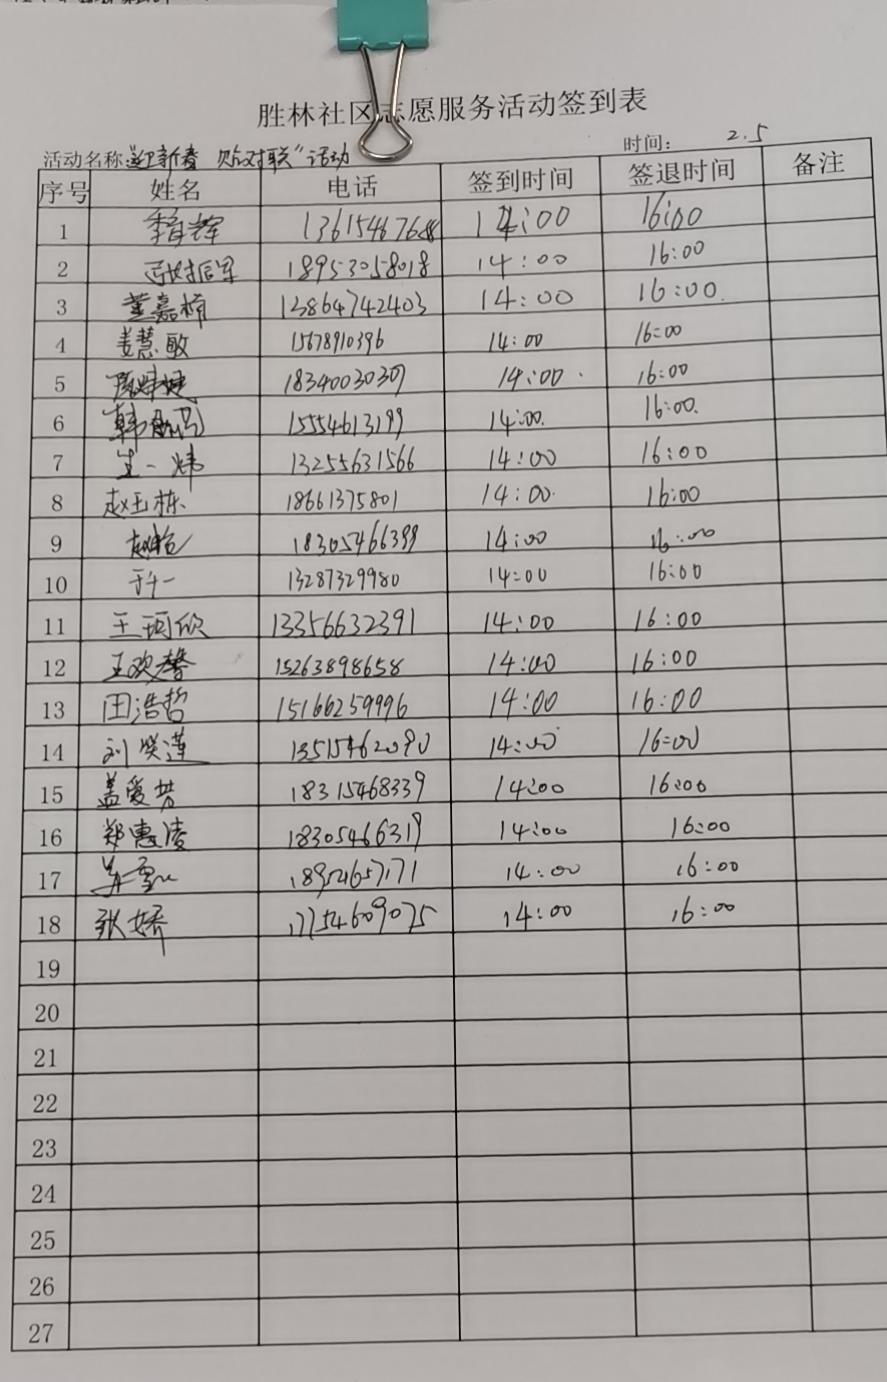 胜林社区志愿服务活动签到表
活动名称 迎新春 贴对联"活动 时间: 2.5
序号 姓名 电话 签到时间 签退时间 备注
1 14:00 16:00
2 18953058018 14:00 16:00
3 董嘉楠 13864742403 14:00 16:00
4 姜慧敏 15678910396 14:00 16:00
5 18340030307 14:00 16:00
6 15554613199 14:00 16:00
7 13255631566 14:00 16:00
8 赵玉栋 18661375801 14:00 16:00
9 18305466399 14:00 16:00
10 13287329980 14:00 16:00
11 王珂欣 13356632391 14:00 16:00
12 王欢馨 15263898658 14:00 16:00
13 田浩哲 15166259996 14:00 16:00
14 13515462090 14:00 16:00
15 盖爱芳 18315468339 14:00 16:00
16 郑惠凌 18305466319 14:00 16:00
17 18954657171 14:00 16:00
18 张娇 17754609075 14:00 16:00
19
20
21
22
23
24
25
26
27